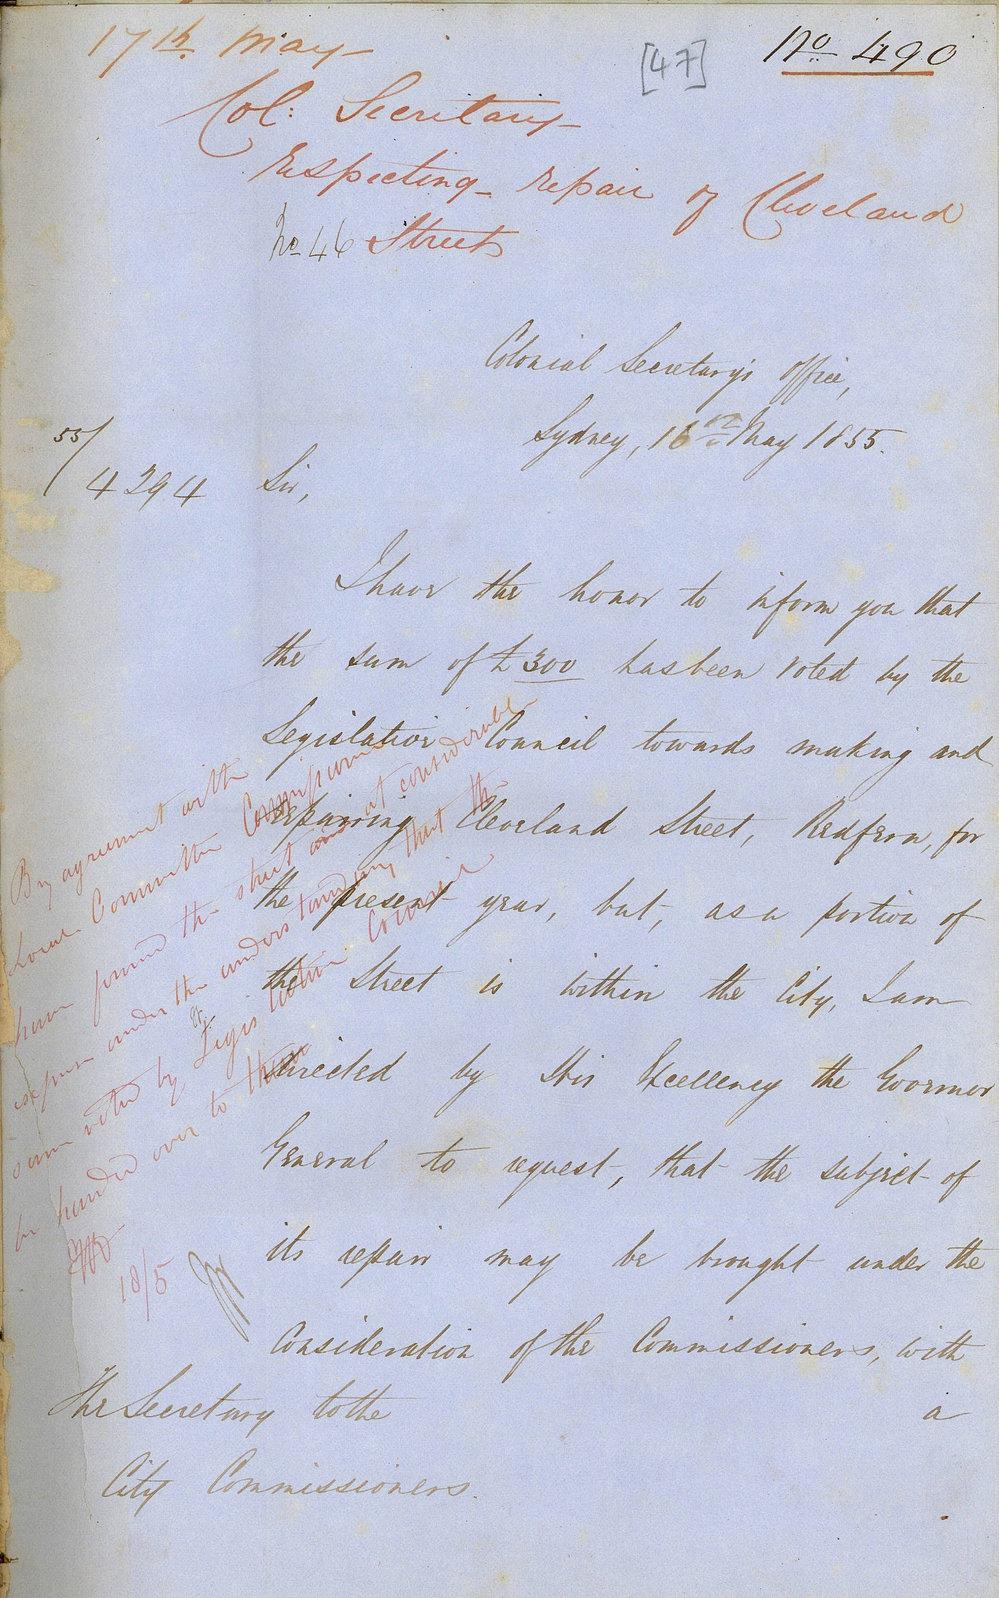 17th May
[47]
No 490
Col: Secretary
respecting repair of Cleveland
No 46 Street
Colonial Secretary's Office,
Sydney, 16th May 1855.
55/4294
Sir,
I have the honor to inform you that
the sum of £300 has been voted by the
Legislative Council towards making and
repairing Cleveland Street, Redfern, for
the present year, but, as a portion of
the Street is within the City, I am
directed by His Excellency the Governor
General to request, that the subject of
its repair may be brought under the
consideration of the Commissioners, with
a
The Secretary to the
City Commissioners.
By agreement with
Local Committee Commissioners
have formed the street and at considerable
expense under the understanding that the
sum voted by Legislative Council
be handed over to them
18/5